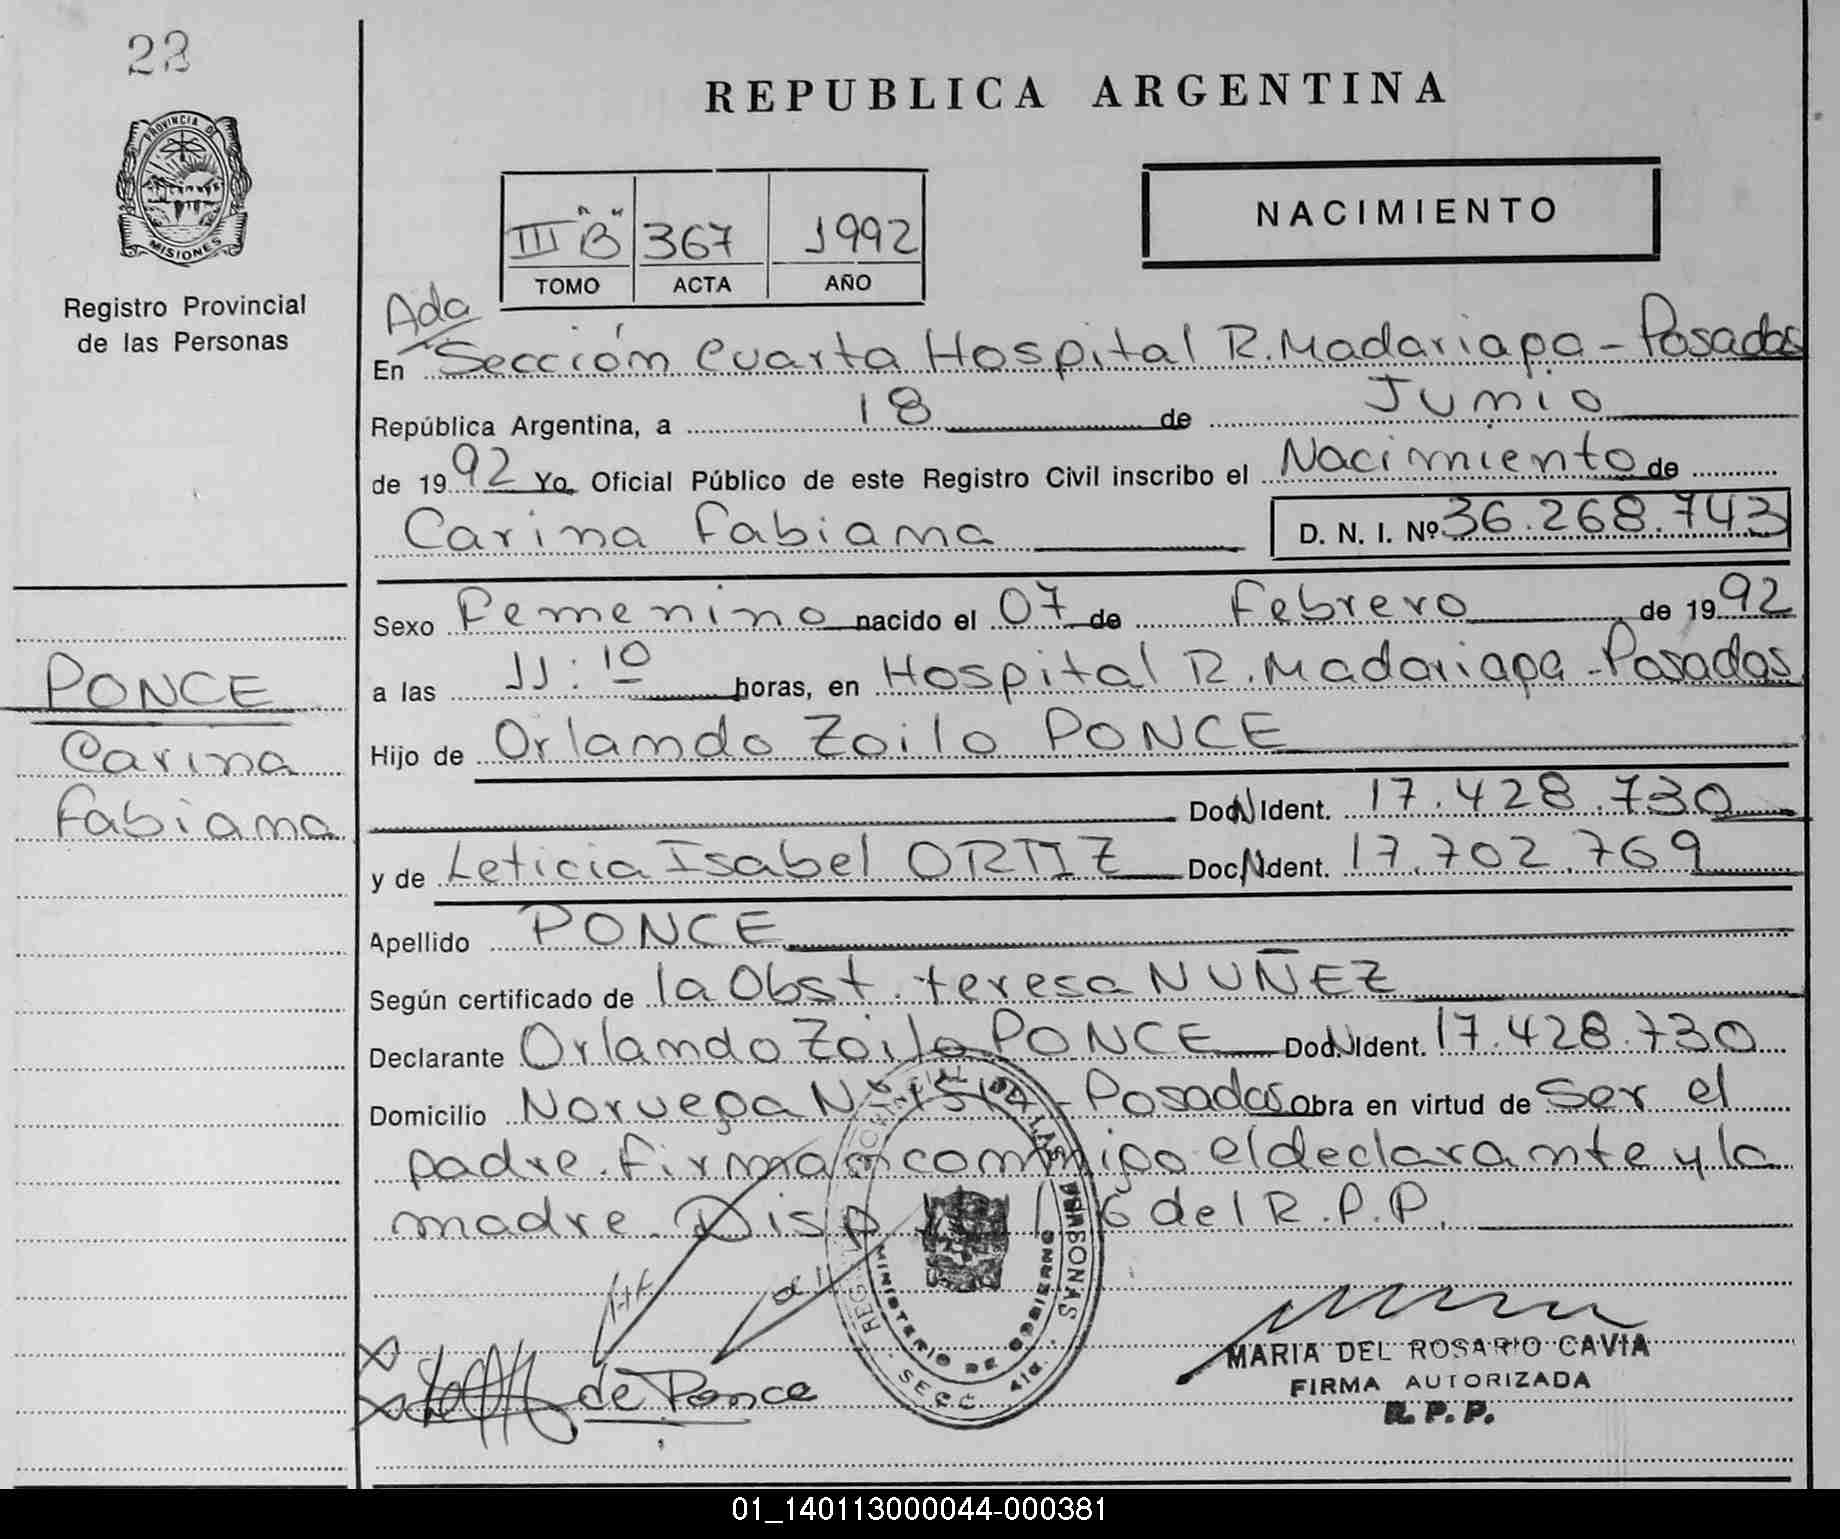 23
PROVINCIA DE
MISIONES
Registro Provincial
de las Personas
PONCE
Carina
Fabiana
REPUBLICA ARGENTINA
III "B" 367 1992
TOMO ACTA AÑO
NACIMIENTO
Ada
En Sección Cuarta Hospital R. Madariaga - Posadas
República Argentina, a 18 de Junio
de 1992 Yo, Oficial Público de este Registro Civil inscribo el Nacimiento de
Carina Fabiana D. N. I. Nº 36.268.743
Sexo Femenino nacido el 07 de Febrero de 1992
a las 11:10 horas, en Hospital R. Madariaga - Posadas
Hijo de Orlando Zoilo PONCE
Doc. N Ident. 17.428.730
y de Leticia Isabel ORTIZ Doc. N Ident. 17.702.769
Apellido PONCE
Según certificado de la Obst. teresa NUÑEZ
Declarante Orlando Zoilo PONCE Doc. N Ident. 17.428.730
Domicilio Noruega Nº - Posadas Obra en virtud de Ser el
padre. firman conmigo el declarante y la
madre. Disp. del R.P.P.
de Ponce
DE LAS PERSONAS
MINISTERIO DE GOBIERNO
SECC 4ta.
MARIA DEL ROSARIO CAVIA
FIRMA AUTORIZADA
R. P. P.
01_140113000044-000381